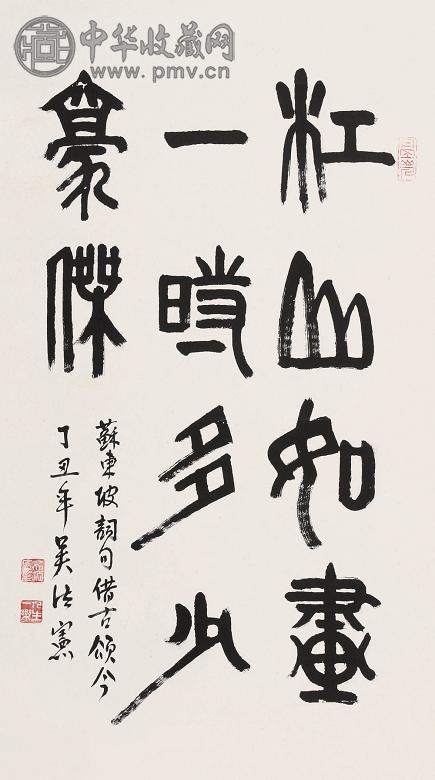 中华收藏网
www.pmv.cn
江山如畫
一時多少
豪傑
蘇東坡詞句借古頌今
丁丑年吳法憲